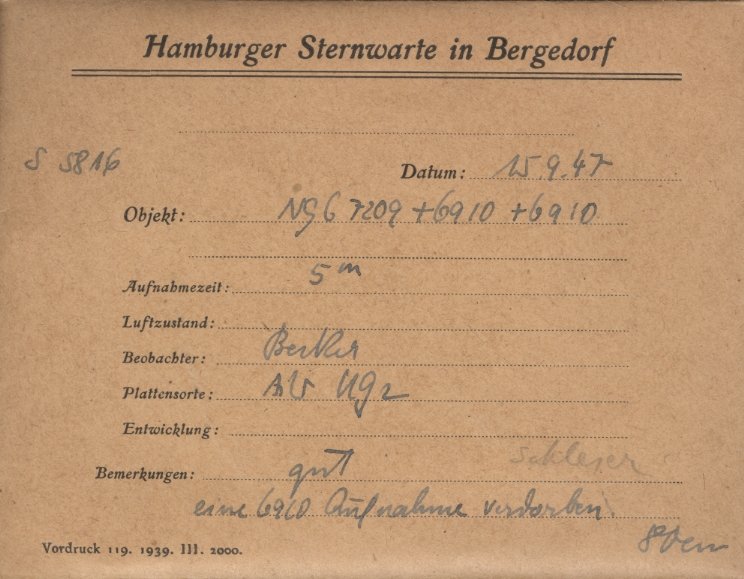 Hamburger Sternwarte in Bergedorf
S 5816
Datum: 15 9.47
Objekt: NGC 7209 + 6910 + 6910
Aufnahmezeit: 5 m
Luftzustand:
Beobachter: Becker
Plattensorte: UG2
Entwicklung:
Bemerkungen: gut
eine 6910 Aufnahme verdorben
Vordruck 119. 1939. III. 2000.